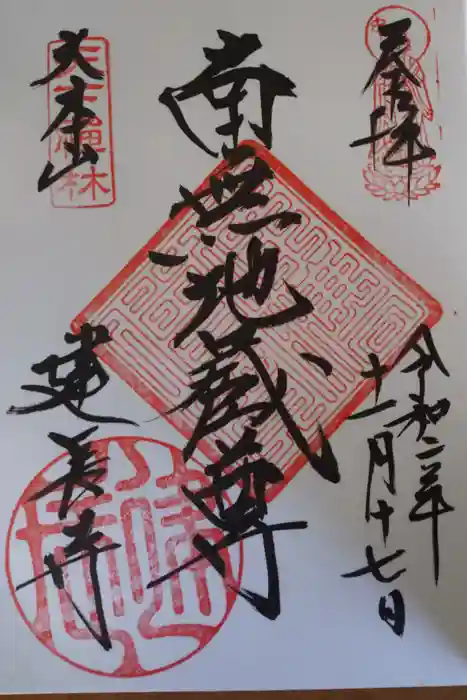 奉拝
令和二年
十一月十七日
南無地蔵尊
大本山
天下禅林
建長寺